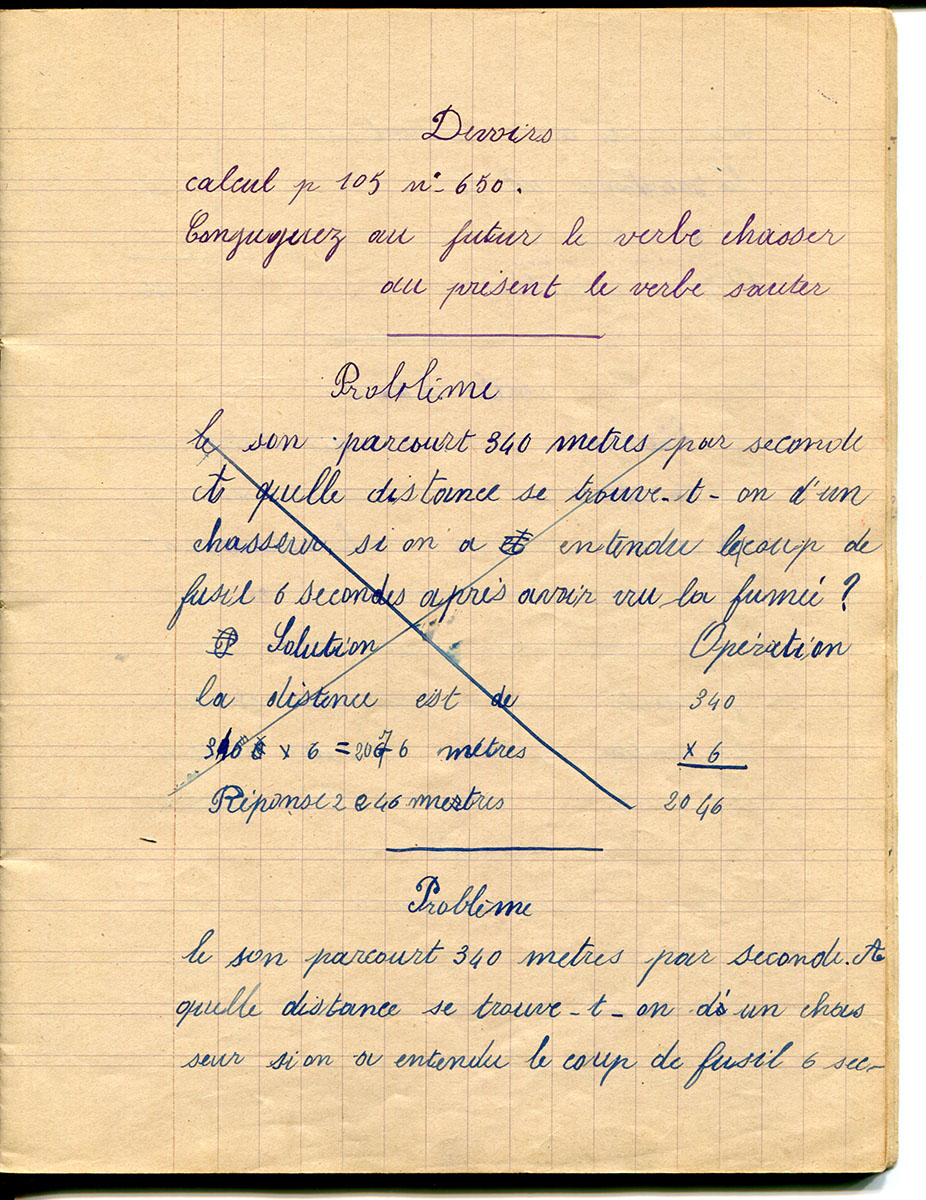 Devoirs
calcul p 105 n° 650.
Conjuguez au futur le verbe chasser
au présent le verbe sauter
Problème
le son parcourt 340 metres par seconde
A quelle distance se trouve-t-on d'un
chasseur si on a entendu le coup de
fusil 6 secondes après avoir vu la fumée ?
Solution Opération
la distence est de 340
340 x 6 = 2046 mètres x 6
Réponse 2046 mestres 2046
Problème
le son parcourt 340 metres par seconde. A
quelle distance se trouve-t-on d'un chas
seur si on a entendu le coup de fusil 6 sec-